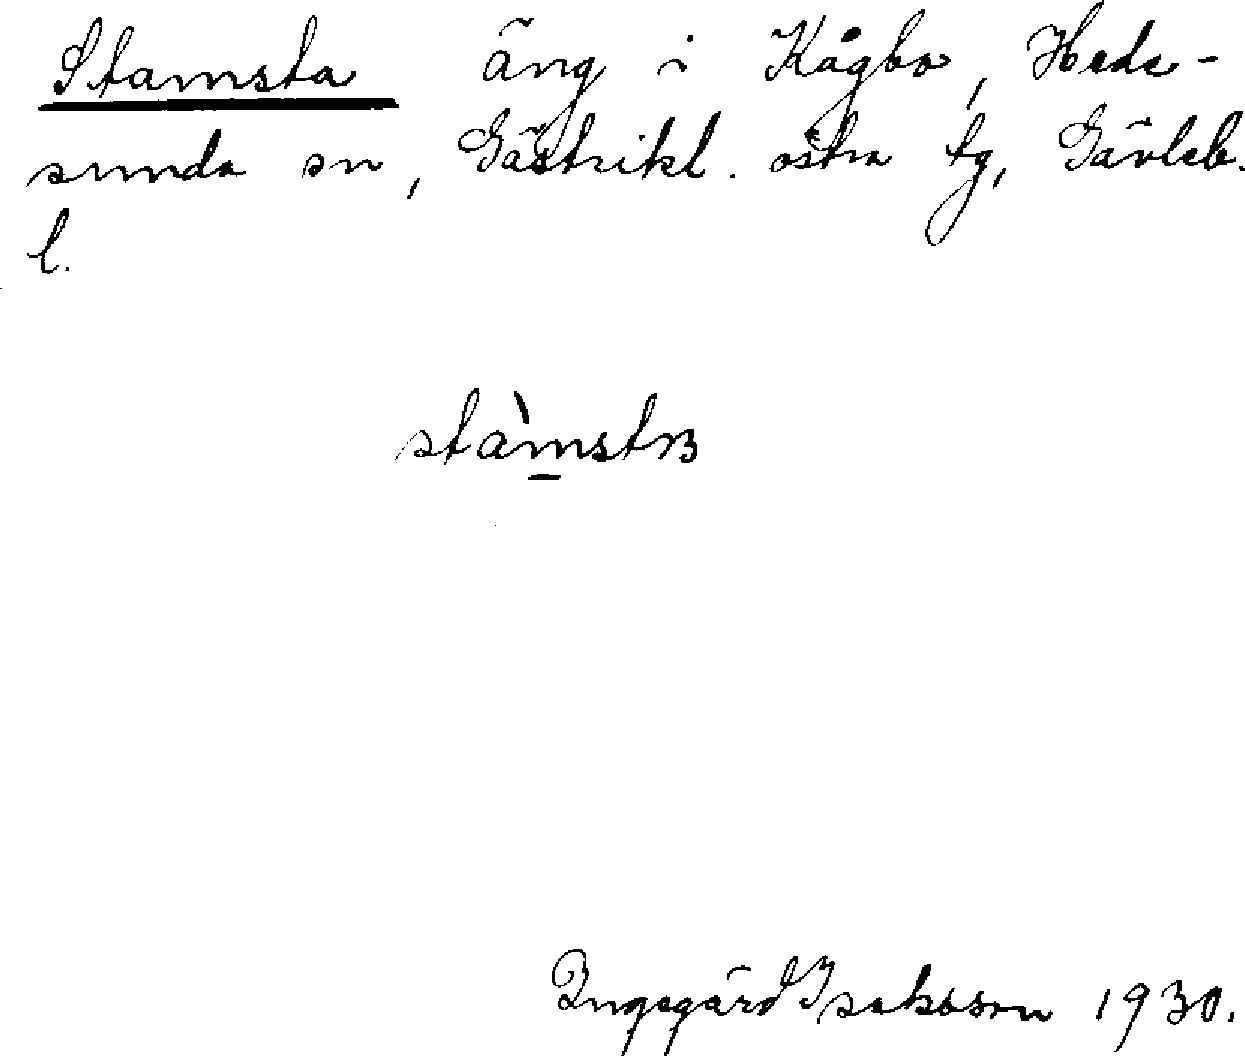 Stamsta äng i Kågbo, Hede-
sunda sn, Gästrikl. östra tg, Gävleb.
l.
Ingegärd Isaksson 1930.